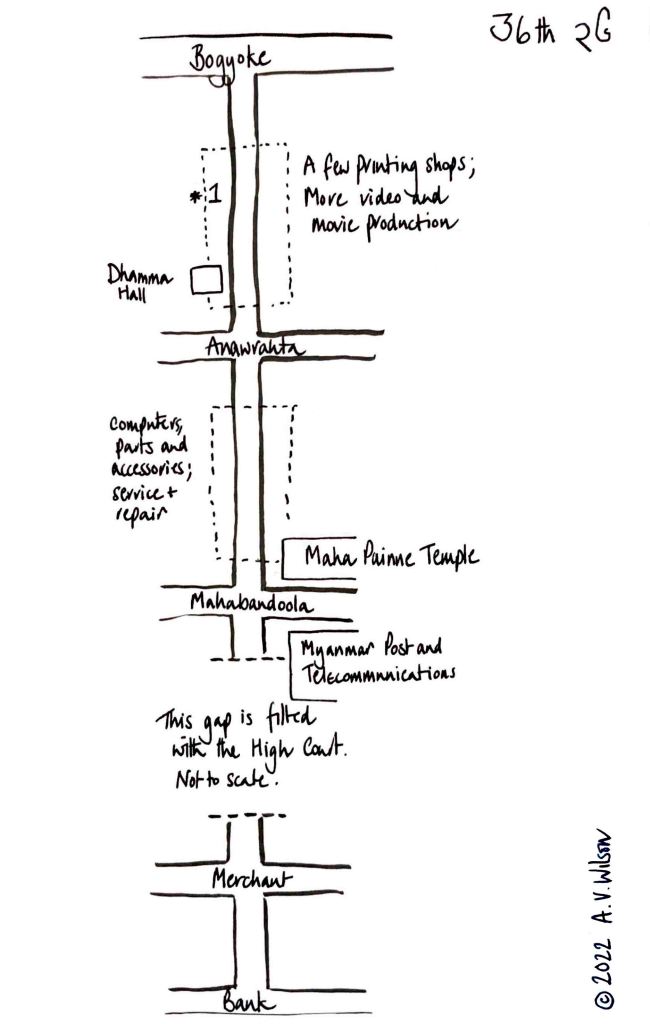 36th ၃၆
Bogyoke
A few printing shops;
More video and
movie production
*1
Dhamma
Hall
Anawrahta
computers,
parts and
accessories;
service +
repair
Maha Painne Temple
Mahabandoola
Myanmar Post and
Telecommunications
This gap is filled
with the High Court.
Not to scale.
Merchant
Bank
© 2022 A.V. Wilson